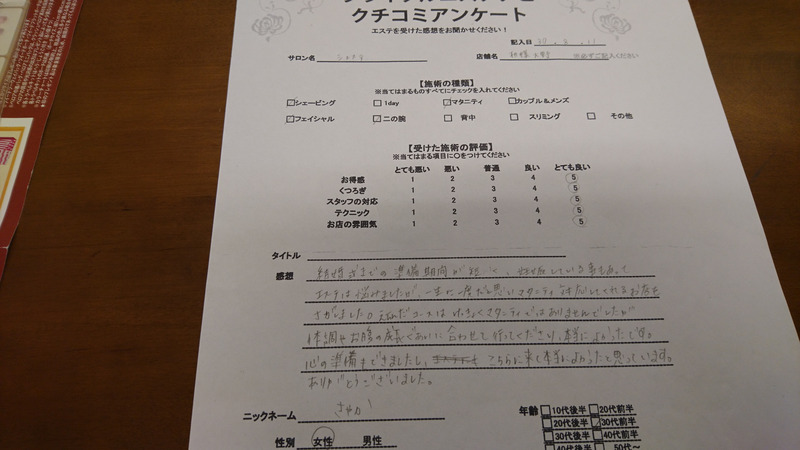 クチコミアンケート
エステを受けた感想をお聞かせください！
記入日 30. 11
サロン名 シェナテ 店舗名 相模大野 ※必ずご記入ください
【施術の種類】
※当てはまるものすべてにチェックを入れてください
シェービング 1day マタニティ カップル＆メンズ
フェイシャル 二の腕 背中 スリミング その他
【受けた施術の評価】
※当てはまる項目に〇をつけてください
とても悪い 悪い 普通 良い とても良い
お得感 1 2 3 4 5
くつろぎ 1 2 3 4 5
スタッフの対応 1 2 3 4 5
テクニック 1 2 3 4 5
お店の雰囲気 1 2 3 4 5
タイトル
感想 結婚式までの準備期間が短く、妊娠している事もあって
エステは悩みましたが、一生に一度だと思いマタニティ対応してくれるお店を
さがしました。えらんだコースはけっきょくマタニティではありませんでしたが
体調やお腹の 合わせて行ってくださり、本当によかったです。
心の準備もできましたし、こちらに来て本当によかったと思っています。
ありがとうございました。
ニックネーム さやか
性別 女性 男性
年齢 10代後半 20代前半
20代後半 30代前半
30代後半 40代前半
40代後半 50代～